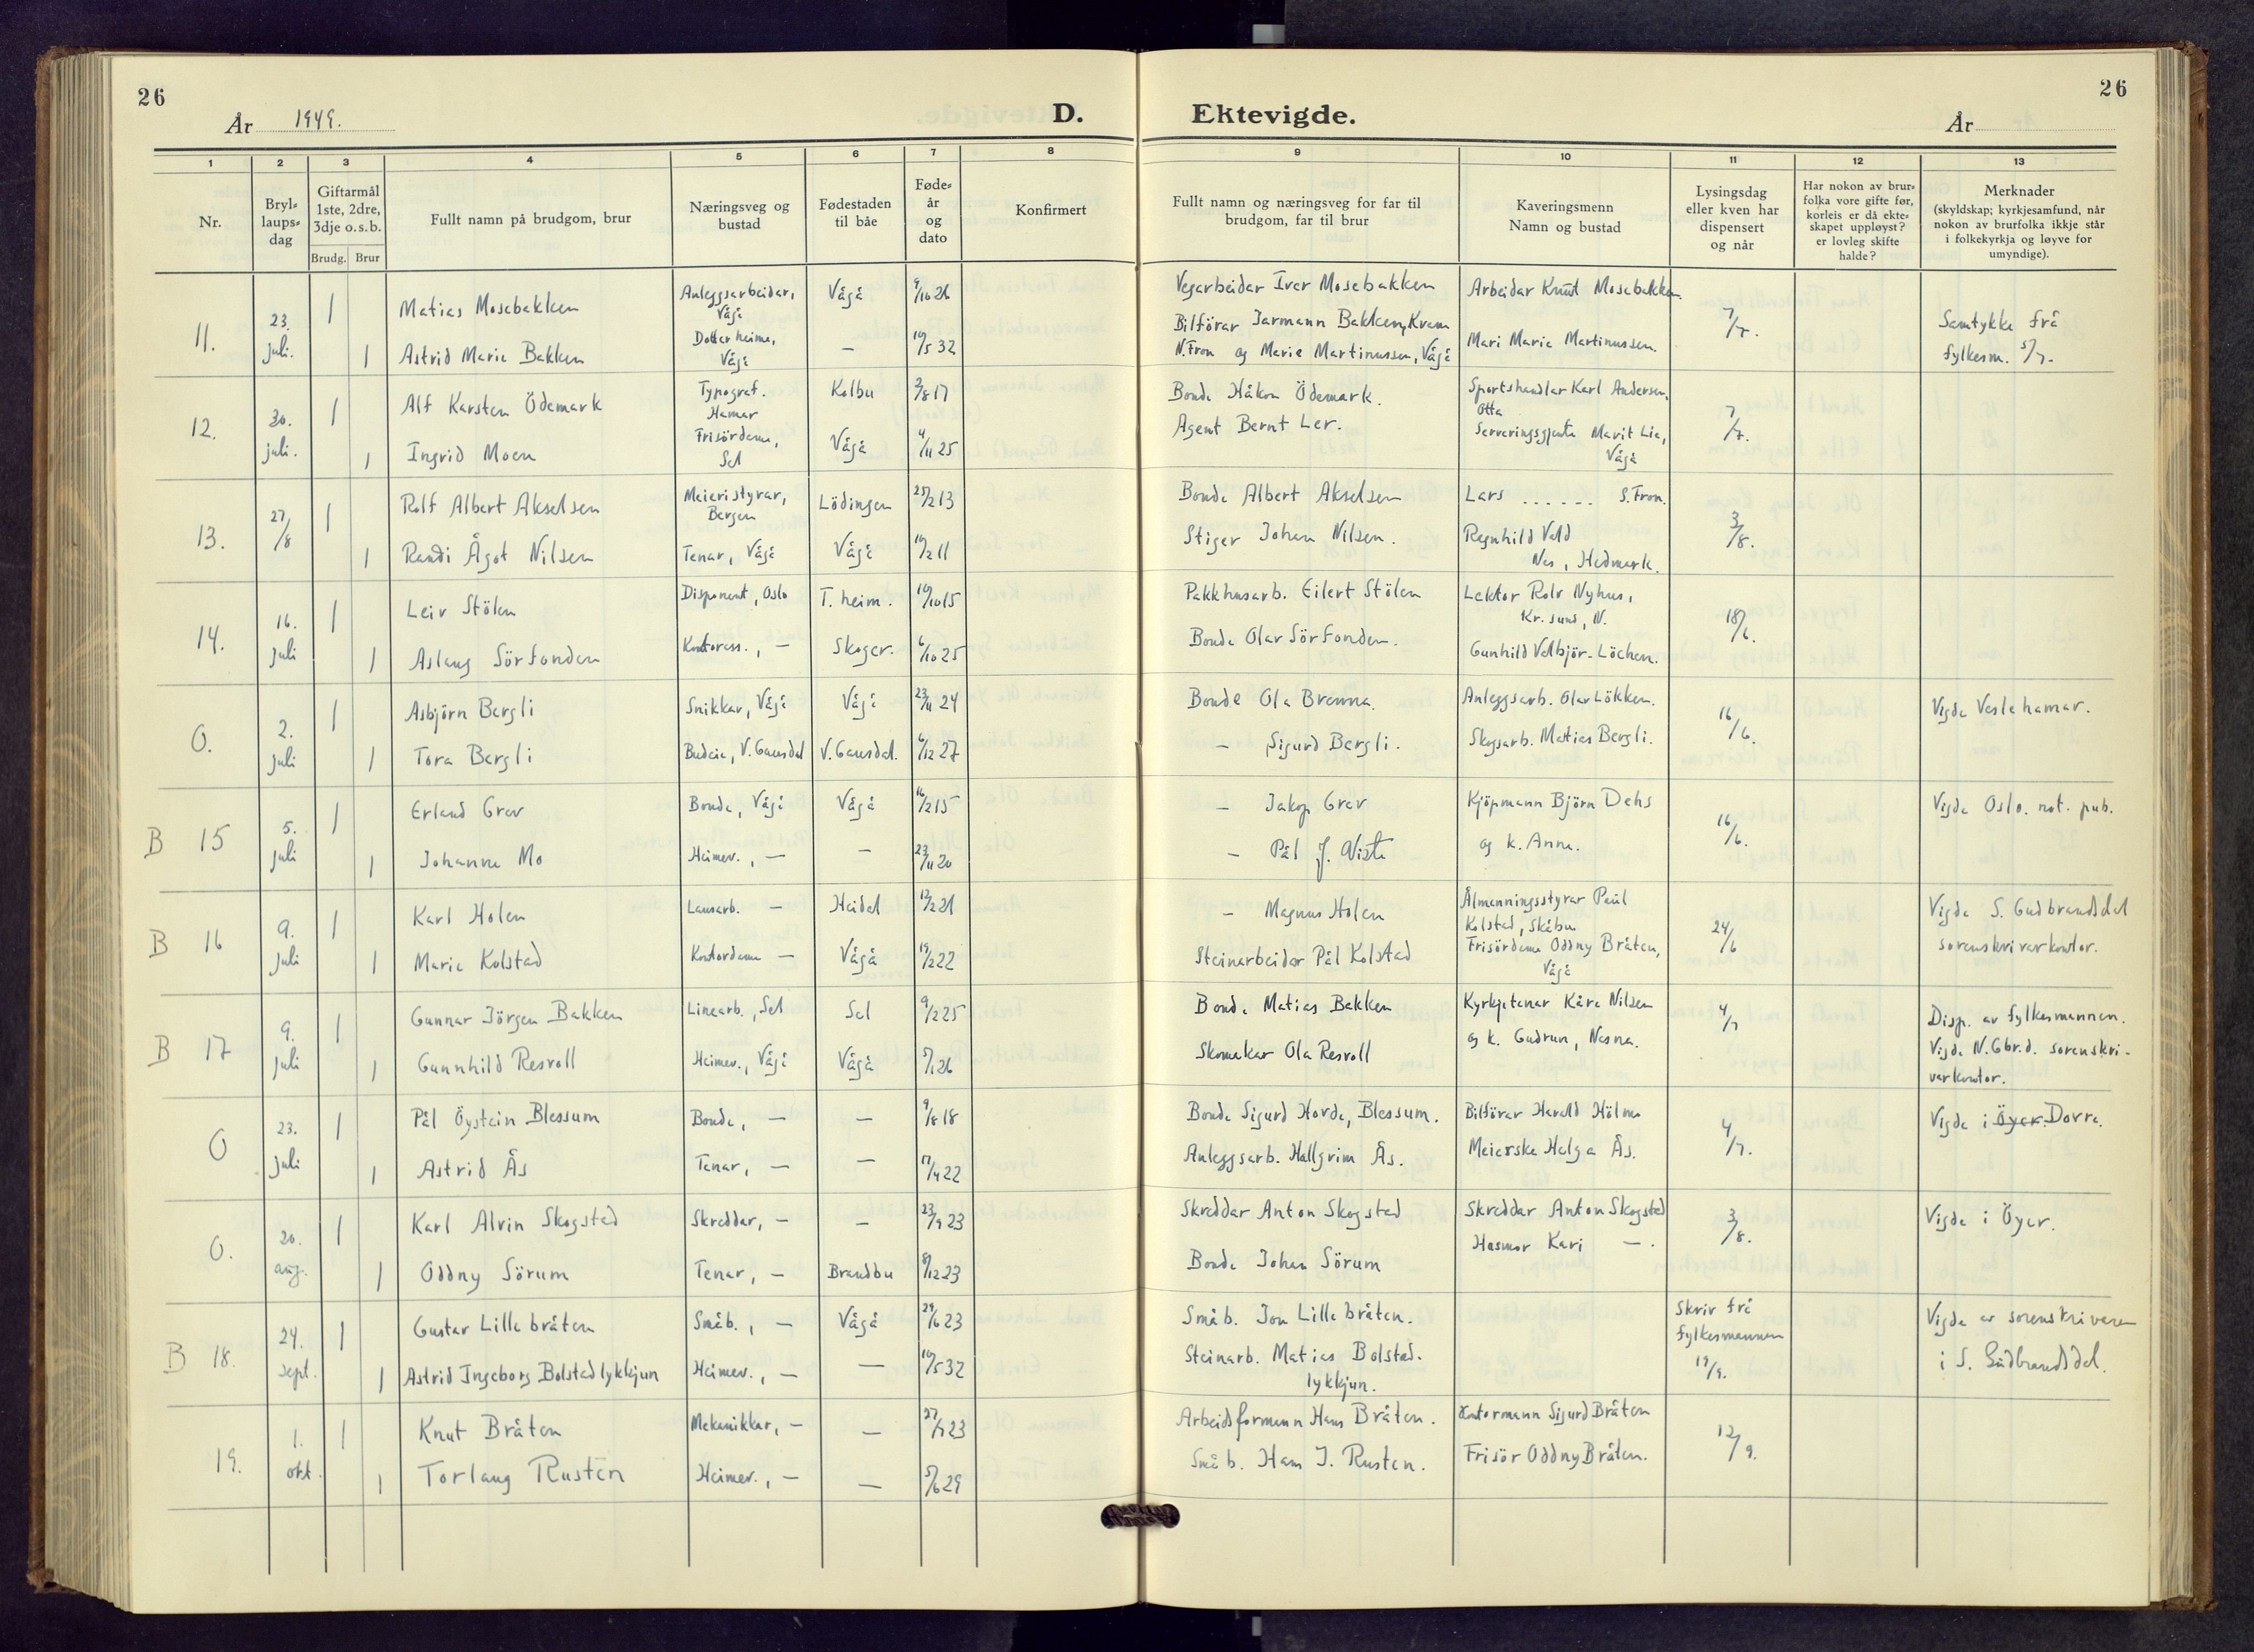 26
År 1949.
D.
Ektevigde.
År
26
1 2 3 4 5 6 7 8 9 10 11 12 13
Nr.
Bryl-
laups-
dag
Giftarmål
1ste, 2dre,
3dje o.s.b.
Brudg. Brur
Fullt namn på brudgom, brur
Næringsveg og
bustad
Fødestaden
til båe
Føde-
år
og
dato
Konfirmert
Fullt namn og næringsveg for far til
brudgom, far til brur
Kaveringsmenn
Namn og bustad
Lysingsdag
eller kven har
dispensert
og når
Har nokon av brur-
folka vore gifte før,
korleis er då ekte-
skapet uppløyst?
er lovleg skifte
halde?
Merknader
(skyldskap; kyrkjesamfund, når
nokon av brurfolka ikkje står
i folkekyrkja og løyve for
umyndige).
11. 23. juli. 1 Matias Mosebakken Anleggsarbeidar, Vågå Vågå 9/10 26 Vegarbeidar Iver Mosebakken Arbeidar Knut Mosebakken. 7/7. Samtykke frå
1 Astrid Marie Bakken Dotter heime, Vågå — 10/5 32 Bilförar Jarmann Bakken, Kvam
N.Fron og Marie Martinussen, Vågå Mari Marie Martinussen. fylkesm. 5/7.
12. 30. juli. 1 Alf Karsten Ödemark Typograf. Hamar Kolbu 2/8 17 Bonde Håkon Ödemark. Sportshandlar Karl Andersen, Otta 7/7.
1 Ingrid Moen Frisördame, Sel Vågå 4/11 25 Agent Bernt Ler. Serveringsgjente Marit Lie, Vågå
13. 27/8 1 Rolf Albert Akselsen Meieristyrar, Bergen Lödingen 25/2 13 Bonde Albert Akselsen Lars ...... S.Fron. 3/8.
1 Randi Ågot Nilsen Tenar, Vågå Vågå 10/2 11 Stiger Johan Nilsen. Ragnhild Vold
Nes, Hedmark.
14. 16. juli 1 Leiv Stölen Disponent, Oslo T.heim. 10/10 15 Pakkhusarb. Eilert Stölen Lektor Rolv Nyhus,
Kr.sund, N. 18/6.
1 Aslaug Sörfonden Kontorass., — Skoger. 6/10 25 Bonde Olav Sörfonden. Gunhild Valbjör-Löchen.
O. 2. juli 1 Asbjörn Bergli Snikkar, Vågå Vågå 23/11 24 Bonde Ola Brenna. Anleggsarb. Olav Lökken. 16/6. Vigde Veslehamar.
1 Tora Bergli Budeie, V.Gausdal V.Gausdal. 6/12 27 — Sigurd Bergli. Skogsarb. Mattias Bergli.
B 15 5. juli 1 Erland Grev Bonde, Vågå Vågå 16/2 15 — Jakop Grev Kjöpmann Björn Dehs 16/6. Vigde Oslo. not. pub.
1 Johanne Mo Heimev., — — 23/11 20 — Pål J. Viste og k. Anne.
B 16 9. juli 1 Karl Holen Lausarb. — Heidal 12/2 21 — Magnus Holen Ålmenningsstyrar Paul
Kolstad, Skåbu 24/6 Vigde S. Gudbrandsdal
1 Marie Kolstad Kontordame — Vågå 19/2 22 Steinarbeidar Pål Kolstad Frisördame Oddny Bråten,
Vågå sorenskrivarkontor.
B 17 9. juli 1 Gunnar Jörgen Bakken Linearb., Sel Sel 9/2 25 Bonde Matias Bakken Kyrkjetenar Kåre Nilsen 4/7 Disp. av fylkesmannen.
1 Gunnhild Resvoll Heimev., Vågå Vågå 5/1 26 Skomakar Ola Resvoll og k. Gudrun, Nesna. Vigde N.Gbr.d. sorenskri-
varkontor.
O 23. juli 1 Pål Öystein Blessum Bonde, — — 9/8 18 Bonde Sigurd Horde, Blessum. Bilförar Harald Holmo 4/7. Vigde i Öyer. Dovre.
1 Astrid Ås Tenar, — — 17/4 22 Anleggsarb. Hallgrim Ås. Meierske Helga Ås.
O. 20. aug. 1 Karl Alvin Skogstad Skreddar, — — 23/9 23 Skreddar Anton Skogstad Skreddar Anton Skogstad 3/8. Vigde i Öyer.
1 Oddny Sörum Tenar, — Brandbu 8/12 23 Bonde Johan Sörum Husmor Kari —.
B 18. 24. sept. 1 Gustav Lillebråten Småb., — Vågå 29/6 23 Småb. Jon Lillebråten. Skriv frå
fylkesmannen
19/9. Vigde av sorenskrivaren
1 Astrid Ingeborg Bolstadlykkjun Heimev., — — 10/5 32 Steinarb. Matias Bolstad-
lykkjun. i S. Gudbrandsdal.
19. 1. okt. 1 Knut Bråten Mekanikkar, — — 27/7 23 Arbeidsformann Hans Bråten. Kontormann Sigurd Bråten 12/9.
1 Torlaug Rusten Heimev., — — 5/6 29 Småb. Hans J. Rusten. Frisör Oddny Bråten.